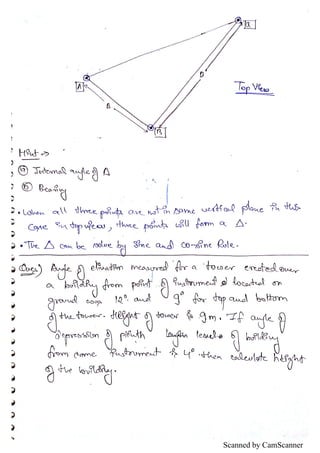 I
A
B
D
D
Top View
Hint →
ⓐ Internal angle of Δ
ⓑ Bearing
• When all three points are not in same vertical plane in this
Case in top view, three points will form a Δ.
• The Δ can be solve by Sine and co-sine Rule.
Ques) Angle of elevation measured for a tower erected over
a building from point of instrument located on
ground was 12° and 9° for top and bottom
of the tower. Height of tower is 9m. If angle of
depression of plinth level of building
from same instrument is 4° then calculate height
of the building.
Scanned by CamScanner